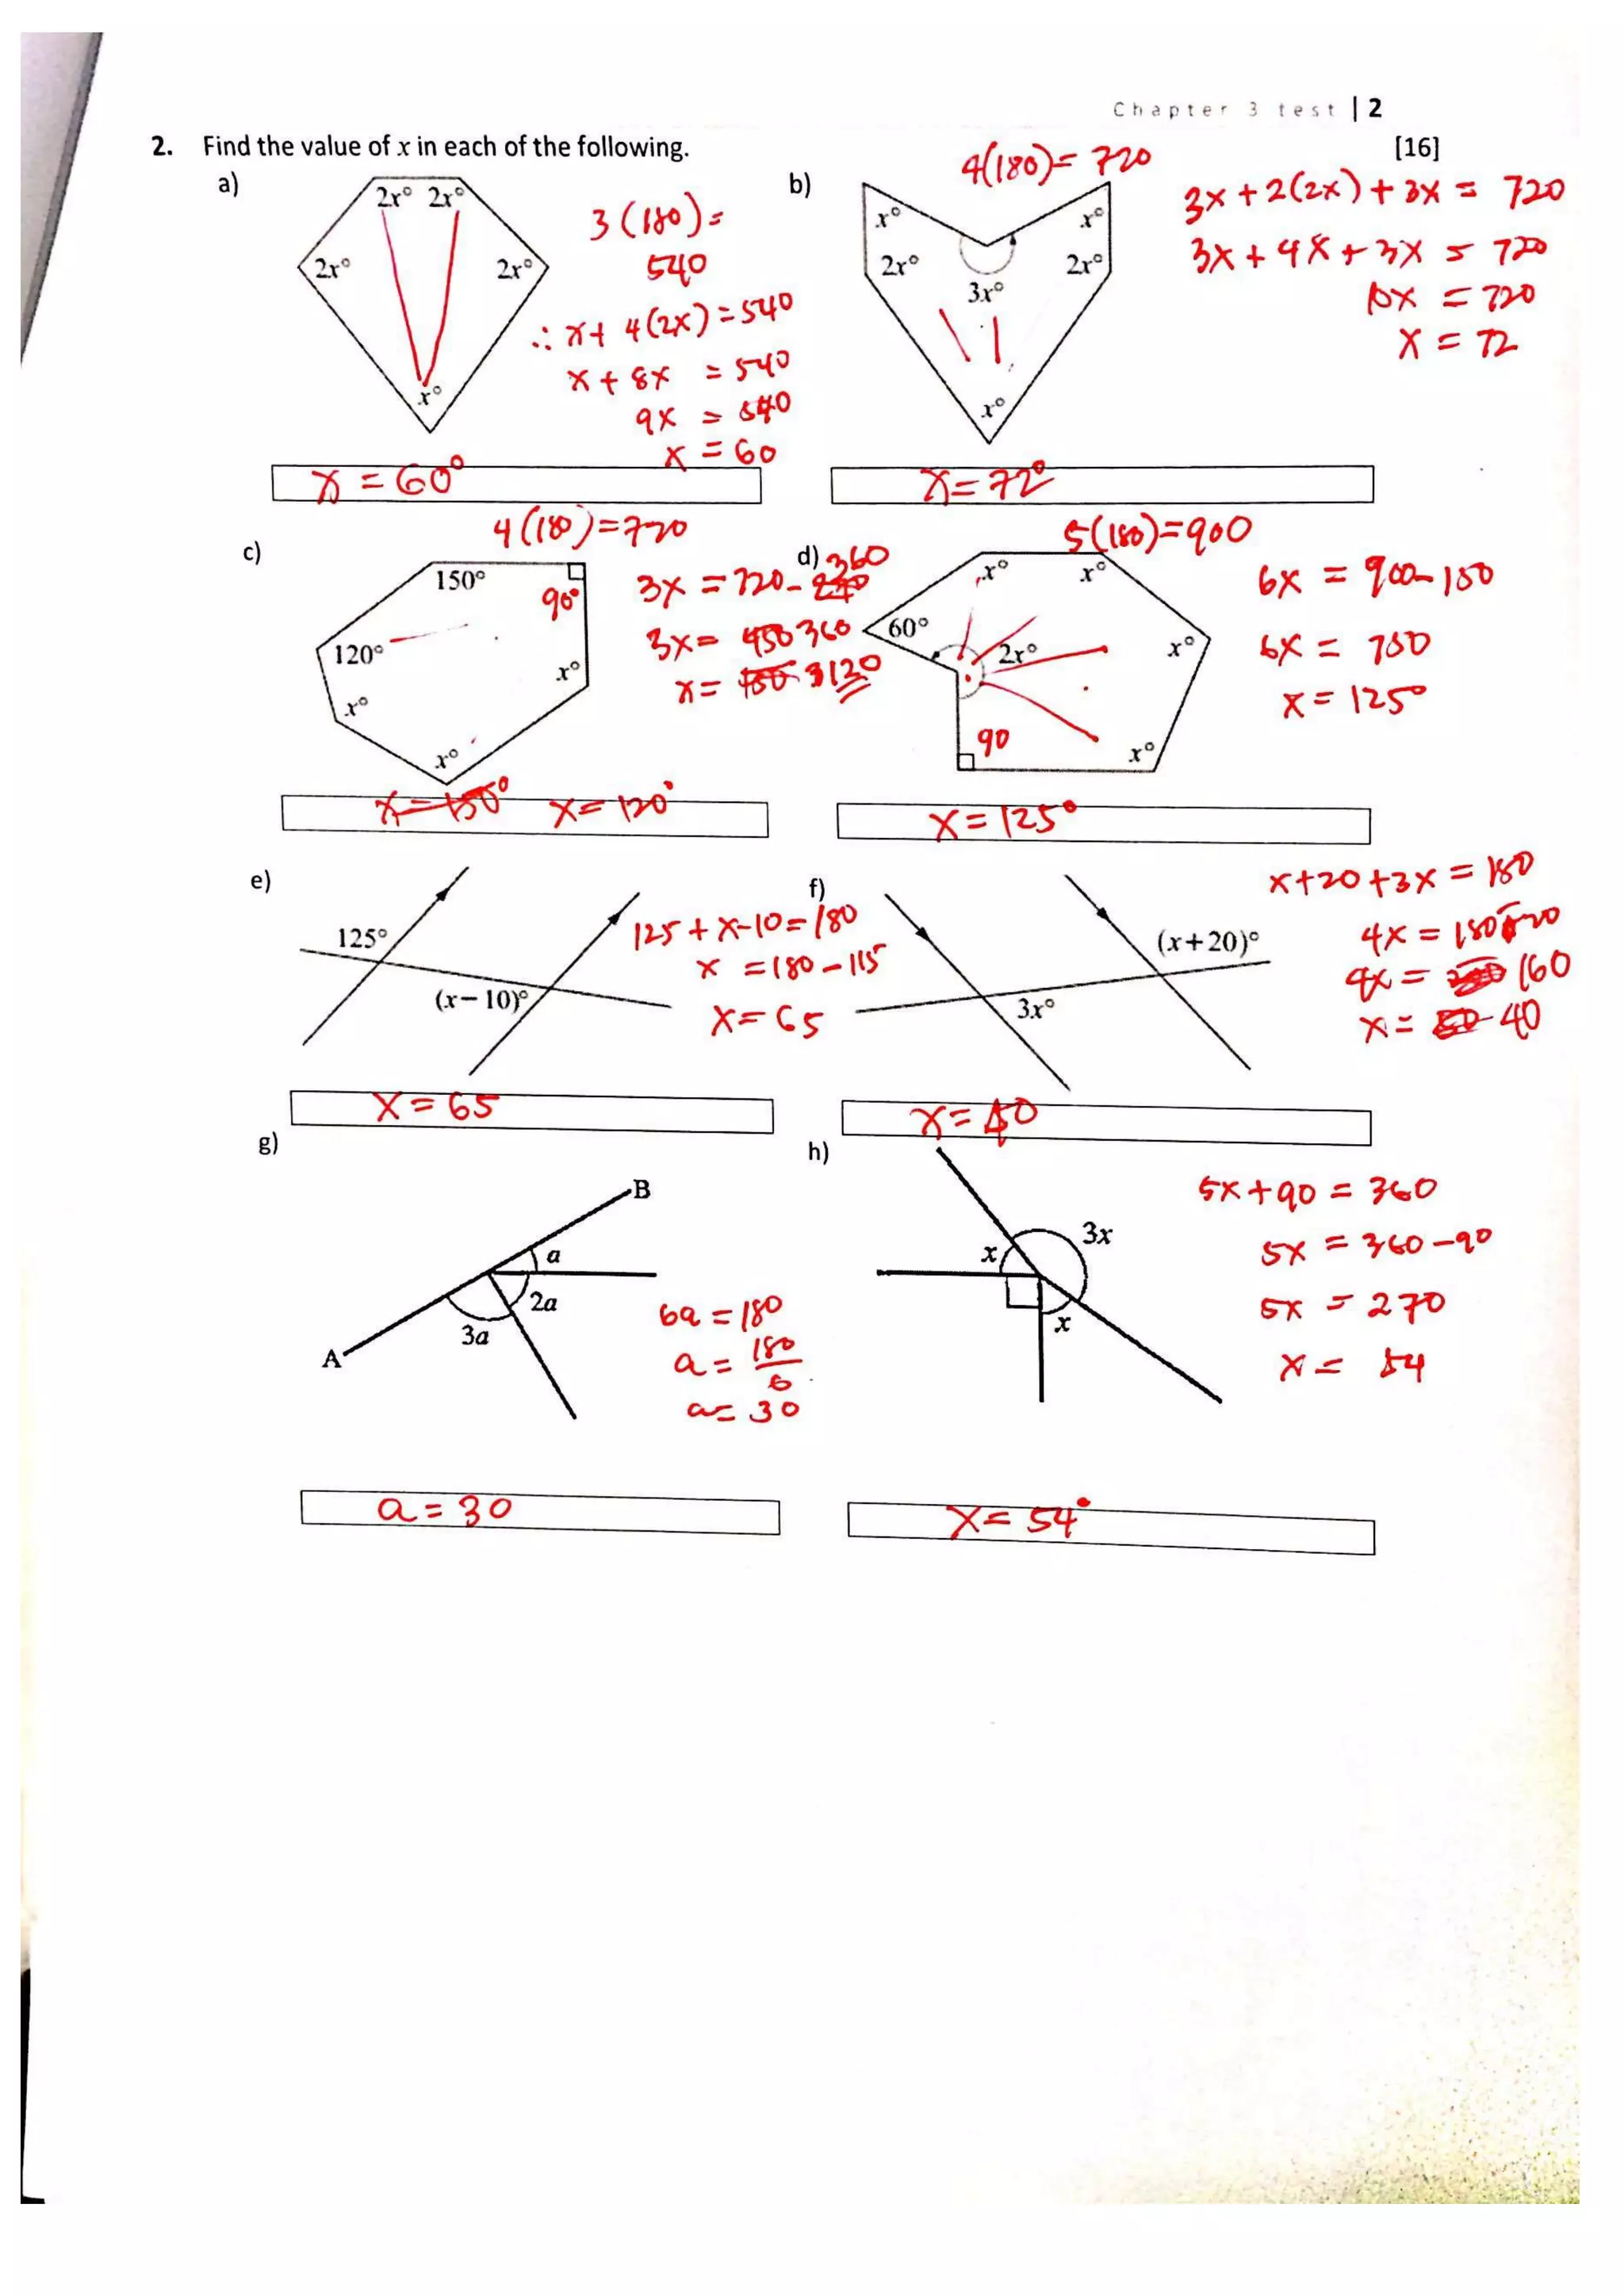 Chapter 3 test | 2
2. Find the value of x in each of the following. [16]
a)
2x° 2x°
2x° 2x°
x°
3(180)=
540
∴ x+ 4(2x)=540
x + 8x = 540
9x = 540
x = 60
x = 60°
b)
4(180)= 720
x° x°
2x° 2x°
3x°
x°
3x + 2(2x) + 3x = 720
3x + 4x + 3x = 720
10x = 720
x = 72
x = 72°
c)
4(180)=720
150°
90°
120°
x°
x°
x°
3x = 720 - 360
3x = 360
x = 120
x = 120°
d)
5(180)=900
x° x°
60°
2x°
x°
90
x°
6x = 900-150
6x = 750
x = 125°
x = 125°
e)
125°
(x−10)°
125 + x-10 = 180
x = 180 - 115
x = 65
x = 65
f)
(x+20)°
3x°
x+20+3x = 180
4x = 180-20
4x = 160
x = 40
x = 40
g)
B
a
2a
3a
A
6a = 180
a = 180
6
a = 30
a = 30
h)
3x
x
x
5x + 90 = 360
5x = 360 - 90
5x = 270
x = 54
x = 54°